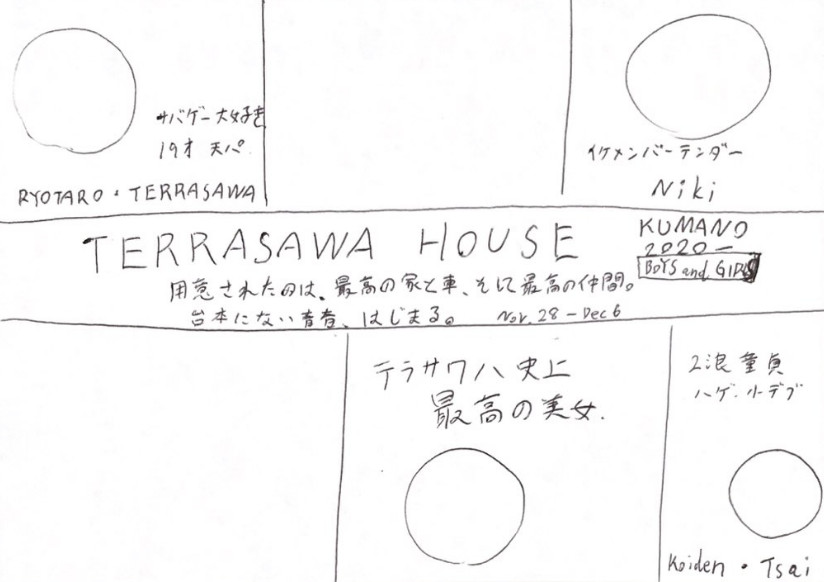 サバゲー大好き
19才 天パ.
RYOTARO・TERRASAWA
イケメンバーテンダー
Niki
TERRASAWA HOUSE
KUMANO
2020-
BOYS and GIRLS
用意されたのは、最高の家と車、そして最高の仲間。
台本にない青春、はじまる。 Nov. 28 - Dec 6
テラサワハ史上
最高の美女.
2浪 童貞
ハゲ.小デブ
Koiden・Tsai